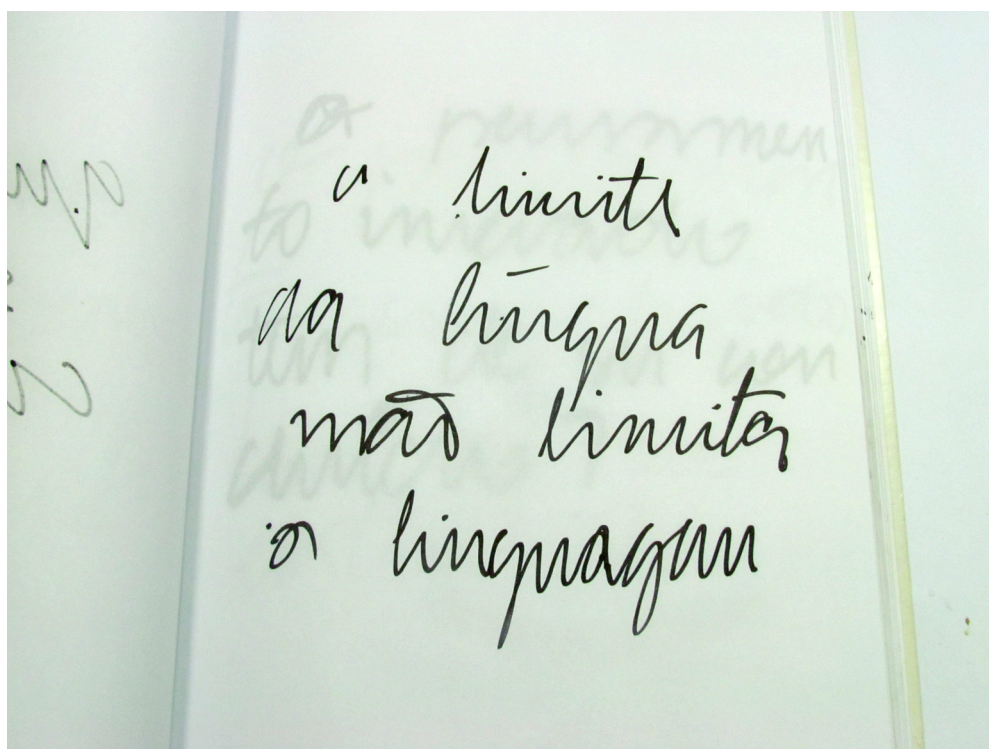 o limite
da língua
não limita
a linguagem